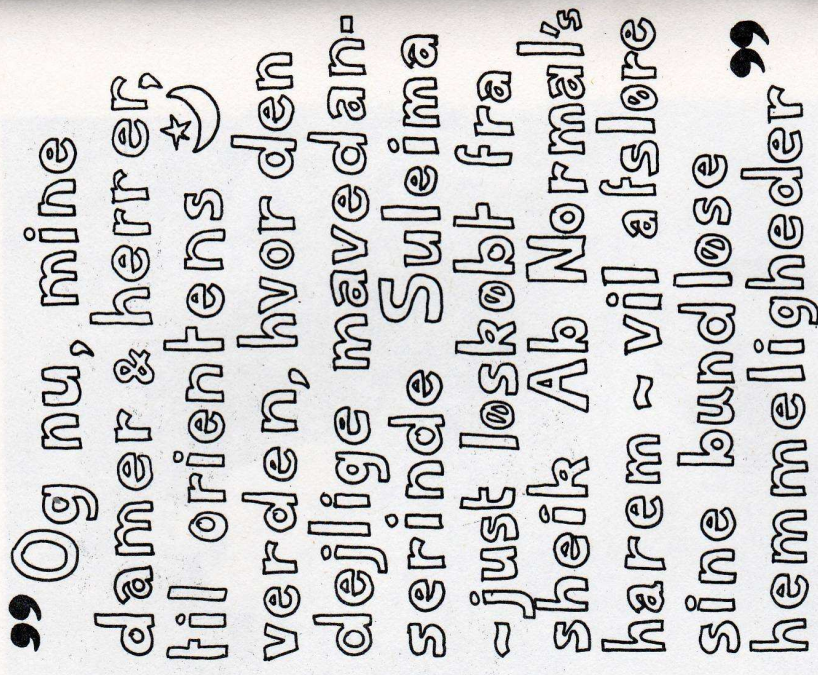 ” Og nu, mine
damer & herrer,
til orientens
verden, hvor den
dejlige mavedan-
serinde Suleima
~just løskøbt fra
sheik Ab Normal's
harem ~ vil afsløre
sine bundløse
hemmeligheder ”